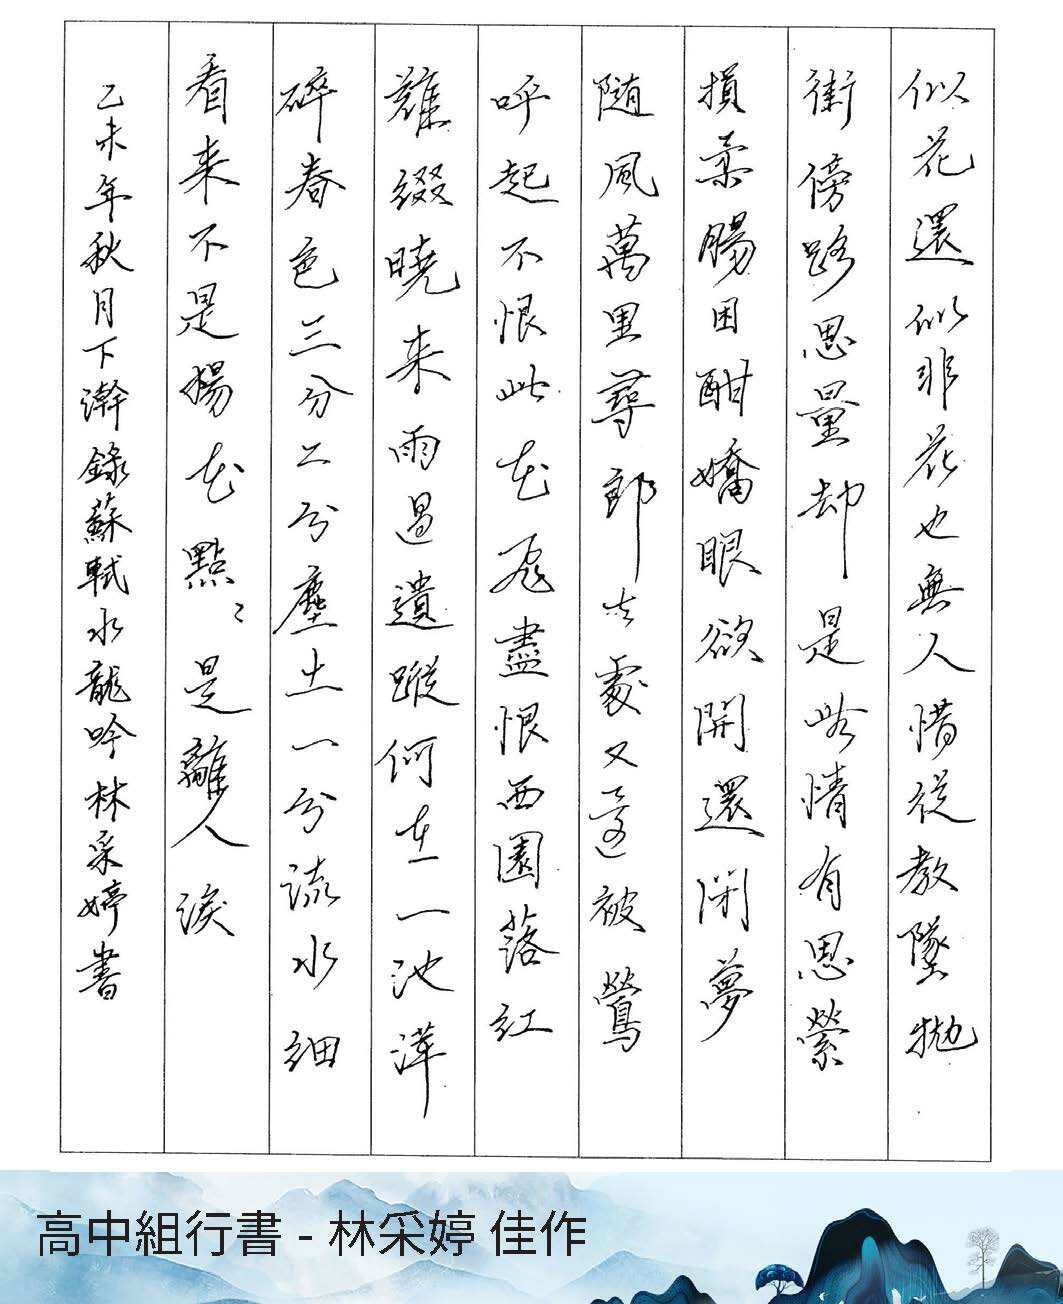 似花還似非花也無人惜從教墜拋
街傍路思量却是情有思縈
損柔腸困酣嬌眼欲開還閉夢
隨風萬里尋郎去處又還被鶯
呼起不恨此花飛盡恨西園落紅
難綴曉来雨過遺蹤何在一池萍
碎春色三分二分塵土一分流水細
看来不是楊花點點是離人淚
乙未年秋月下澣錄蘇軾水龍吟林采婷書
高中組行書 - 林采婷 佳作